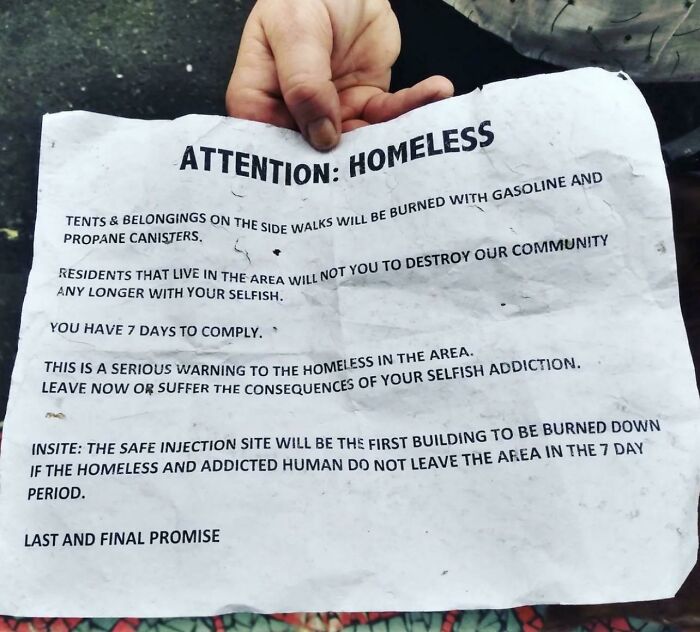 ATTENTION: HOMELESS
TENTS & BELONGINGS ON THE SIDE WALKS WILL BE BURNED WITH GASOLINE AND
PROPANE CANISTERS.
RESIDENTS THAT LIVE IN THE AREA WILL NOT YOU TO DESTROY OUR COMMUNITY
ANY LONGER WITH YOUR SELFISH.
YOU HAVE 7 DAYS TO COMPLY.
THIS IS A SERIOUS WARNING TO THE HOMELESS IN THE AREA.
LEAVE NOW OR SUFFER THE CONSEQUENCES OF YOUR SELFISH ADDICTION.
INSITE: THE SAFE INJECTION SITE WILL BE THE FIRST BUILDING TO BE BURNED DOWN
IF THE HOMELESS AND ADDICTED HUMAN DO NOT LEAVE THE AREA IN THE 7 DAY
PERIOD.
LAST AND FINAL PROMISE